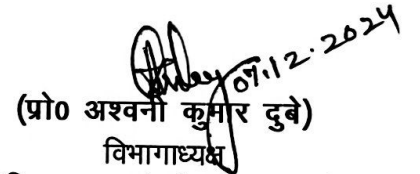 07.12.2024
(प्रो0 अश्वनी कुमार दुबे)
विभागाध्यक्ष